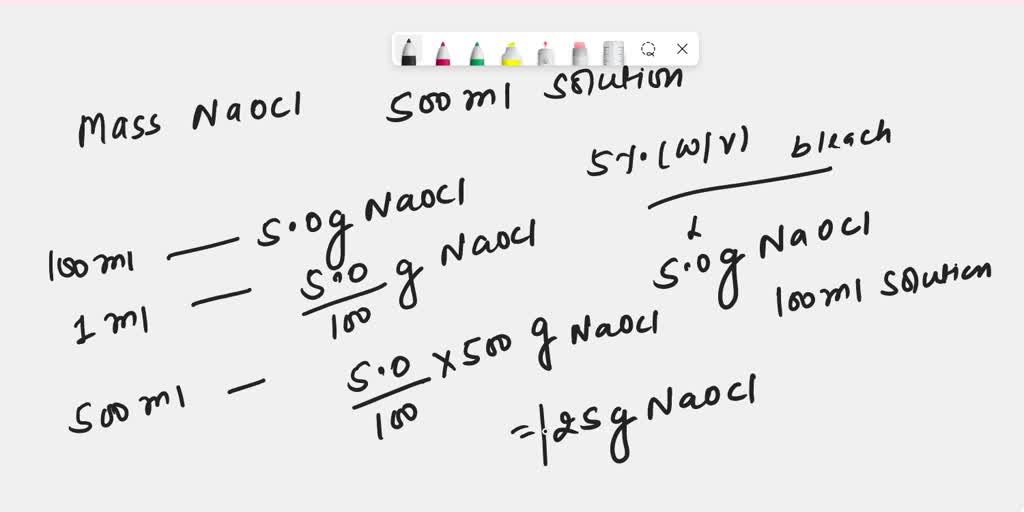 Mass NaOCl 500ml solution
5% (w/v) bleach
100ml — 5.0g NaOCl
1 ml — 5.0/100 g NaOCl
5.0g NaOCl
100ml solution
500ml — 5.0/100 × 500 g NaOCl
= 25g NaOCl